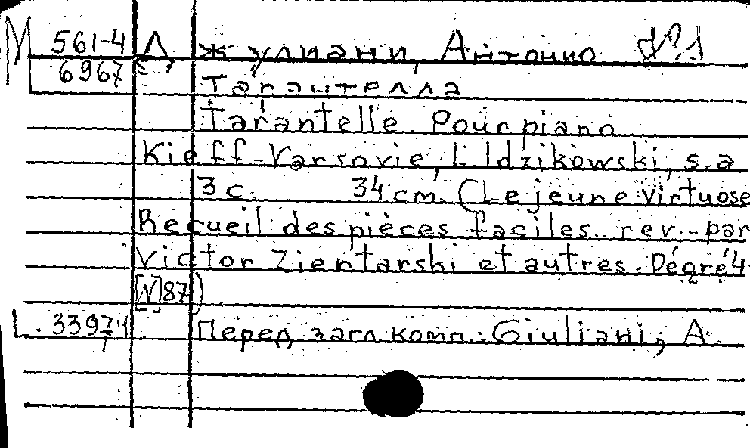 М 561-4 Джулиани, Антонио
6967
Тарантелла
Tarantelle. Pour piano
Kieff-Varsovie, L. Idzikowski, s.a
3 с. 34 cm. (Le jeune virtuose
Recueil des pièces faciles rev. par
Victor Zientarski et autres. Dégré 4
[N]87)
Перед загл. комп.: Giuliani, A.